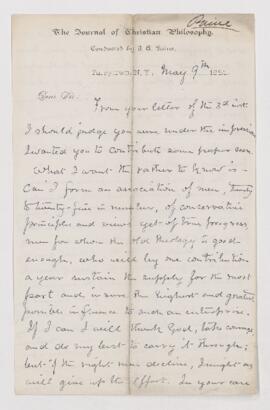 Paine
The Journal of Christian Philosophy.
Conducted by J. A. Paine.
Tarrytown, N.Y., May 9th 1882.
Dear Sir:
From your letter of the 3d inst.
I should judge you were under the impression
I wanted you to contribute some paper soon.
What I want the rather to know is—
Can I form an association of men, twenty
to twenty-five in number, of conservative
principles and views yet of true progress,
men for whom the old theology is good
enough, who will by one contribution
a year sustain the supply for the most
part and insure the highest and greatest
possible influence to such an enterprise.
If I can I will thank God, take courage
and do my best to carry it through;
but if the right men decline, I might as
well give up the effort. In your case